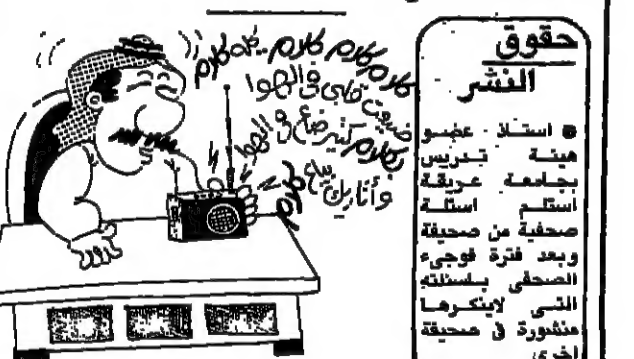 كلام كلام كلام .. كله كلام
ضيعت قلبى فى الهوا
بكلام كتير ضاع فى الهوا
وأتاريك بياع كلام
حقوق
النشر
● استاذ عضو
هيئة تدريس
بجامعة عريقة
استلم اسئلة
صحفية من صحيفة
وبعد فترة فوجىء
الصحفى باسئلته
التى لاينكرها
منشورة فى صحيفة
اخرى